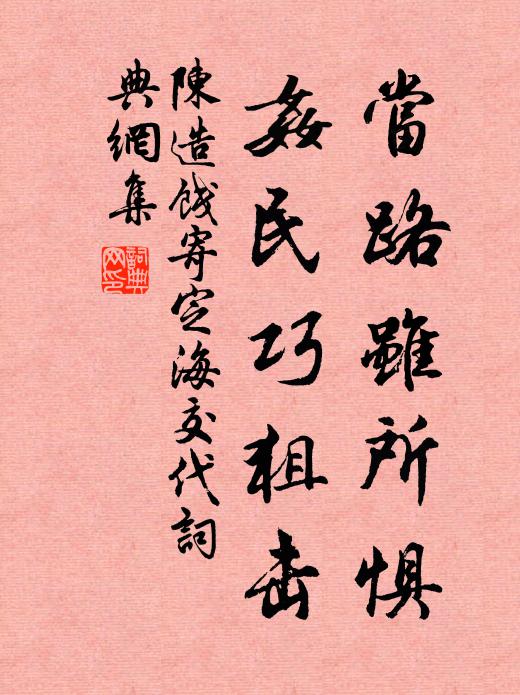 當路雖所惧
姦民巧狙击
陳造餞寄定海交代詞
典網集
詞典
网印